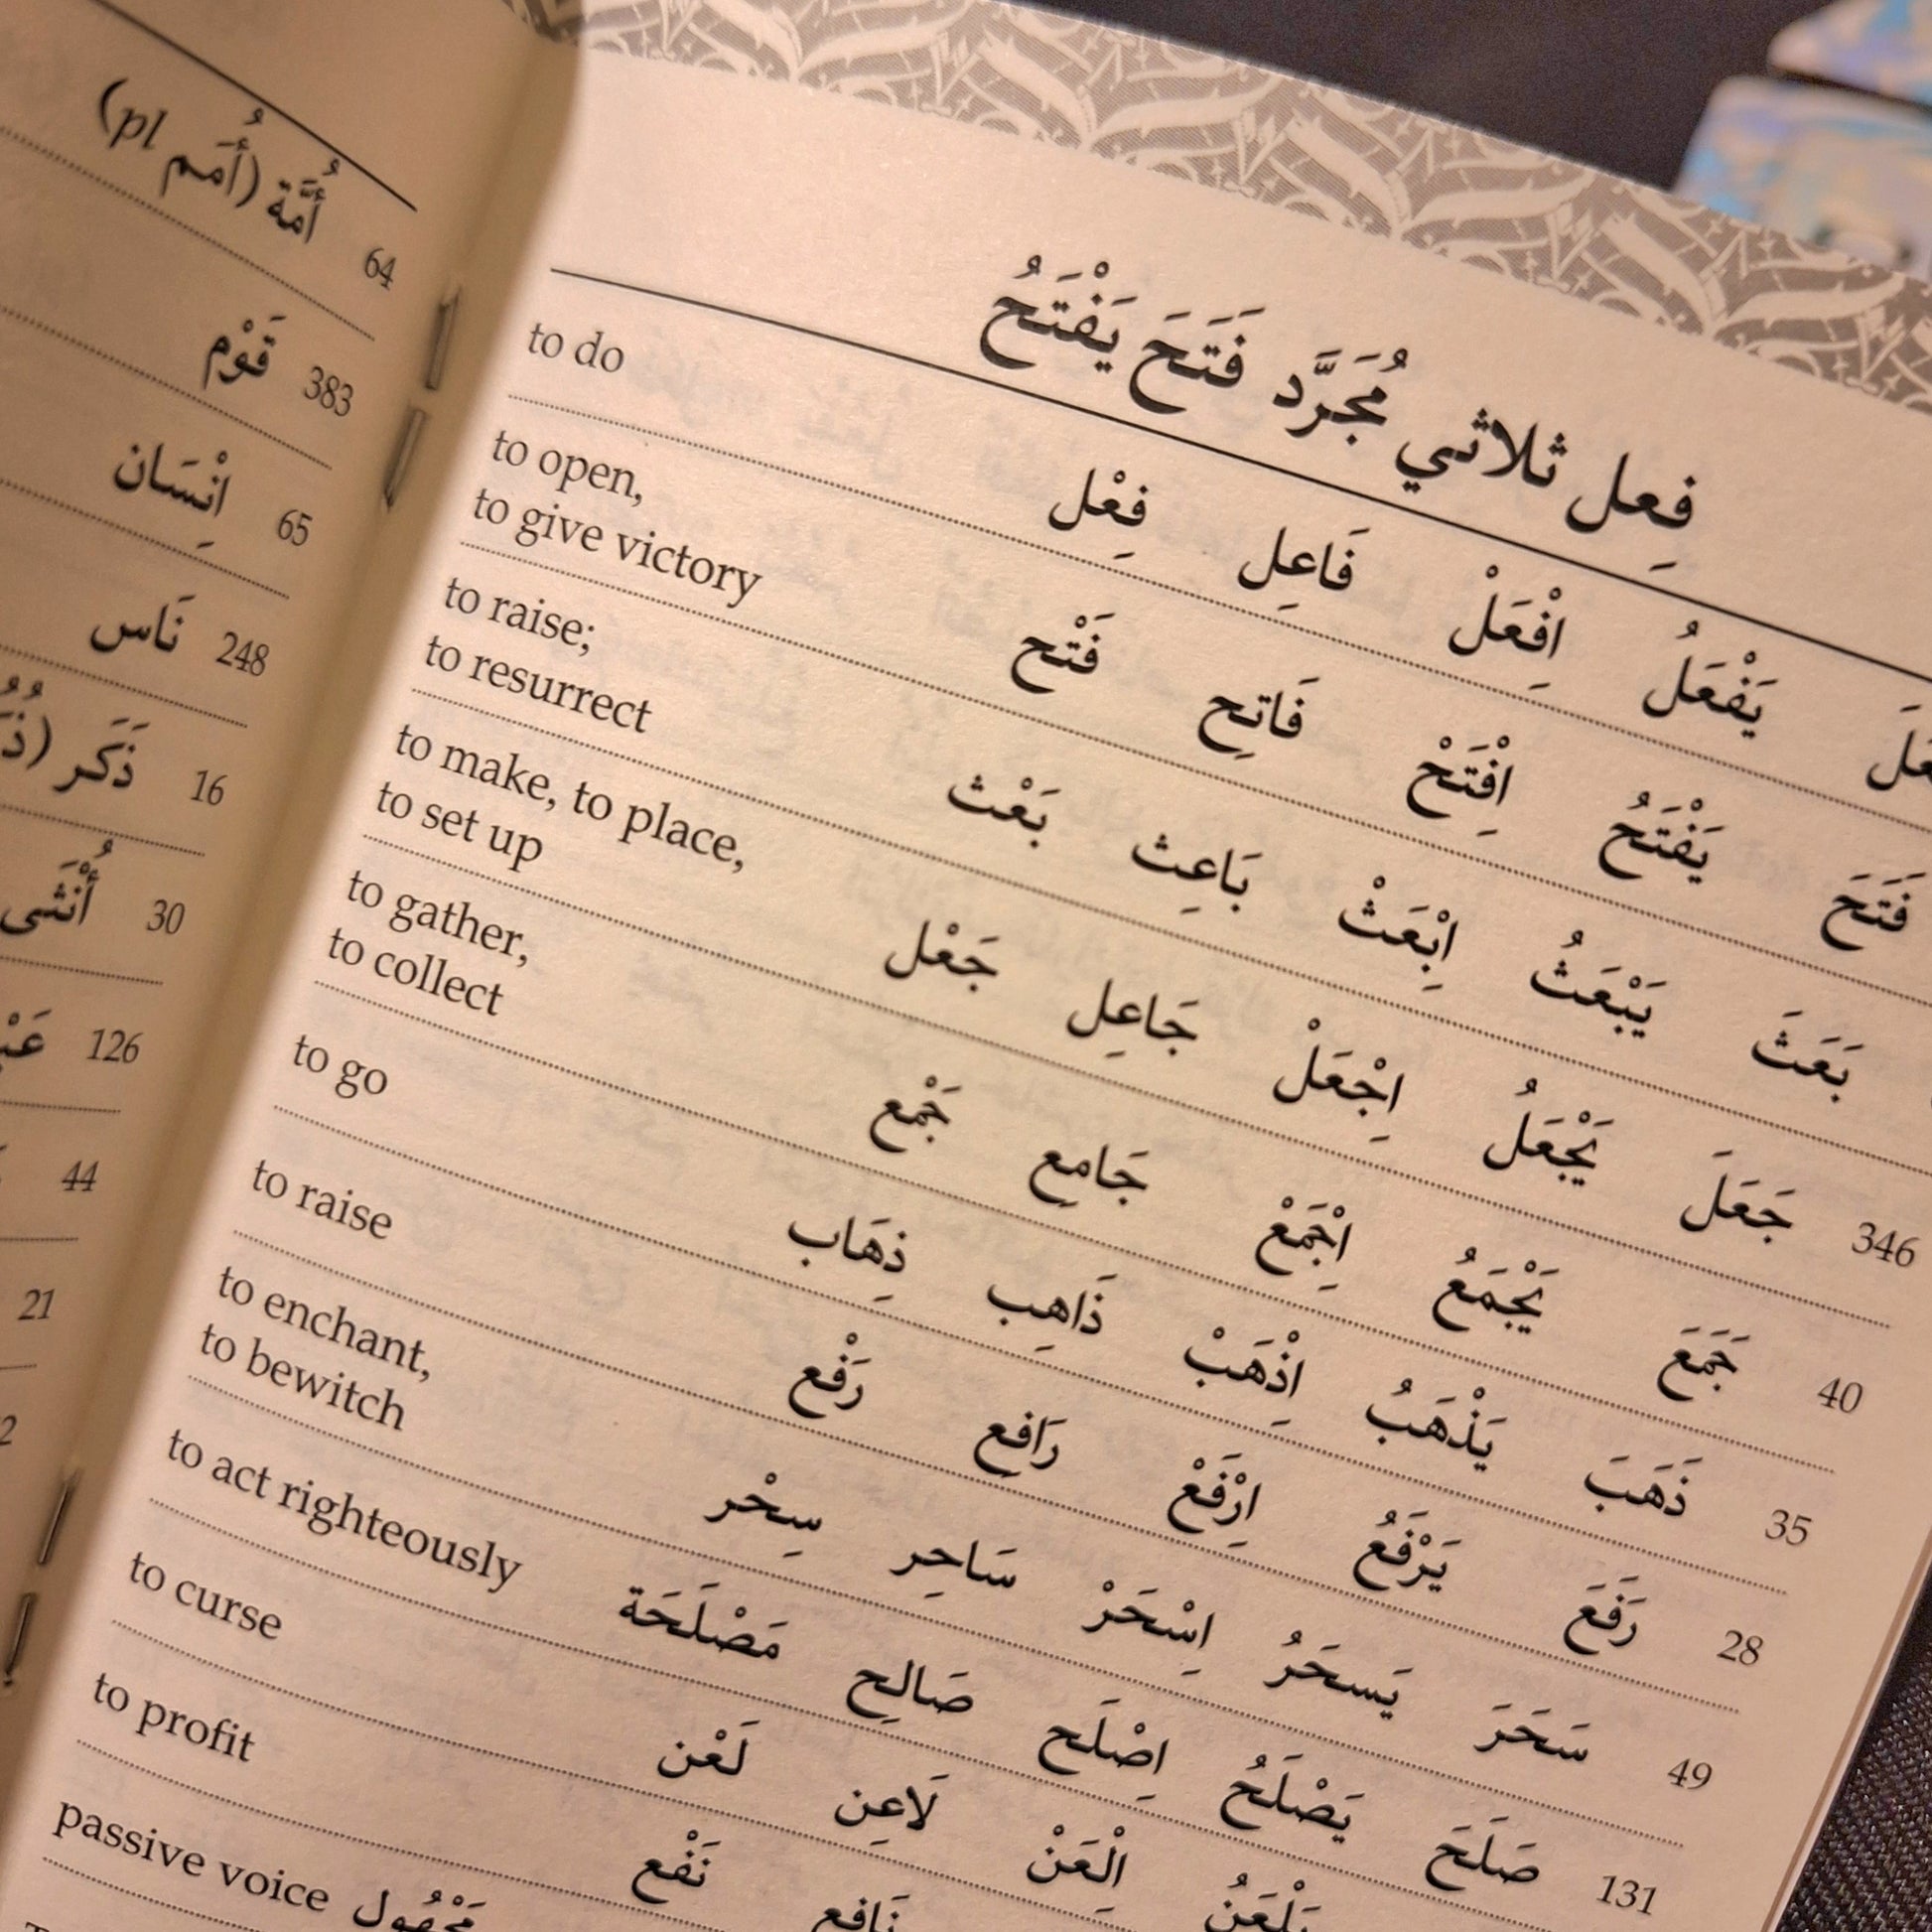 أُمَّة (أُمَم pl) 64
قَوْم 383
اِنْسَان 65
نَاس 248
ذَكَر 16
أُنْثَى 30
126
44
21
فِعل ثلاثي مُجَرَّد فَتَحَ يَفْتَحُ
يَفْعَلُ اِفْعَلْ فَاعِل فِعْل to do
فَتَحَ يَفْتَحُ اِفْتَحْ فَاتِح فَتْح to open,
to give victory
بَعَثَ يَبْعَثُ اِبْعَثْ بَاعِث بَعْث to raise;
to resurrect
346 جَعَلَ يَجْعَلُ اِجْعَلْ جَاعِل جَعْل to make, to place,
to set up
40 جَمَعَ يَجْمَعُ اِجْمَعْ جَامِع جَمْع to gather,
to collect
35 ذَهَبَ يَذْهَبُ اِذْهَبْ ذَاهِب ذِهَاب to go
28 رَفَعَ يَرْفَعُ اِرْفَعْ رَافِع رَفْع to raise
49 سَحَرَ يَسحَرُ اِسْحَرْ سَاحِر سِحْر to enchant,
to bewitch
131 صَلَحَ يَصْلَحُ اِصْلَح صَالِح مَصْلَحَة to act righteously
يَلْعَنُ الْعَنْ لَاعِن لَعْن to curse
نَافِع نَفْع to profit
passive voice مَجْهُول